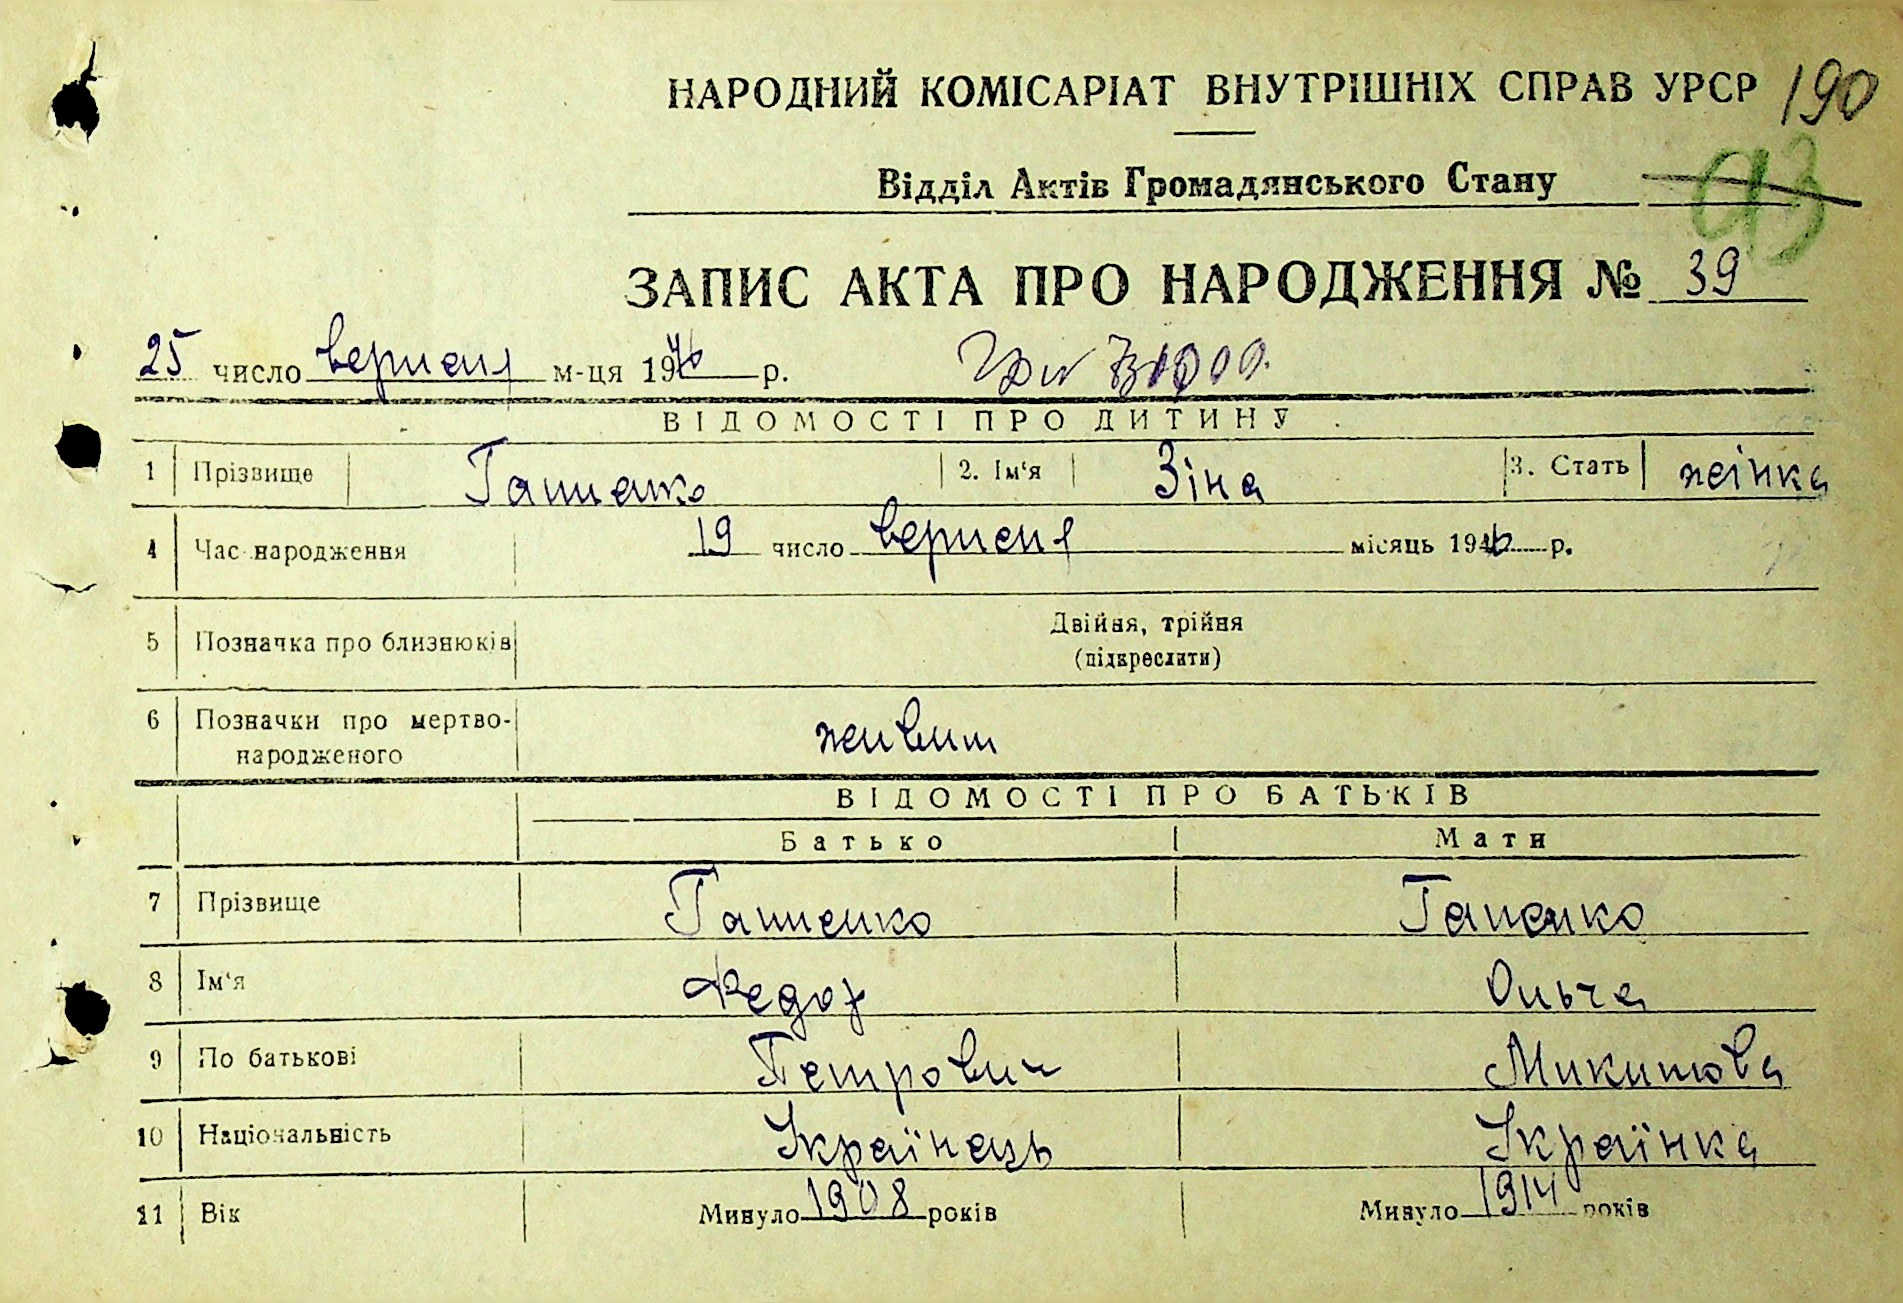 НАРОДНИЙ КОМІСАРІАТ ВНУТРІШНІХ СПРАВ УРСР 190
Відділ Актів Громадянського Стану 93
ЗАПИС АКТА ПРО НАРОДЖЕННЯ № 39
25 число вересня м-ця 1946 р.
ВІДОМОСТІ ПРО ДИТИНУ
1 Прізвище Гапиенко 2. Ім'я Зіна 3. Стать жінка
4 Час народження 19 число вересня місяць 1946 р.
5 Позначка про близнюків Двійня, трійня
(підкреслити)
6 Позначки про мертво-
народженого живит
ВІДОМОСТІ ПРО БАТЬКІВ
Батько Мати
7 Прізвище Гапиенко Гапенко
8 Ім'я Федор Ольга
9 По батькові Петрович Микитова
10 Національність Українець Українка
11 Вік Минуло 1908 років Минуло 1914 років